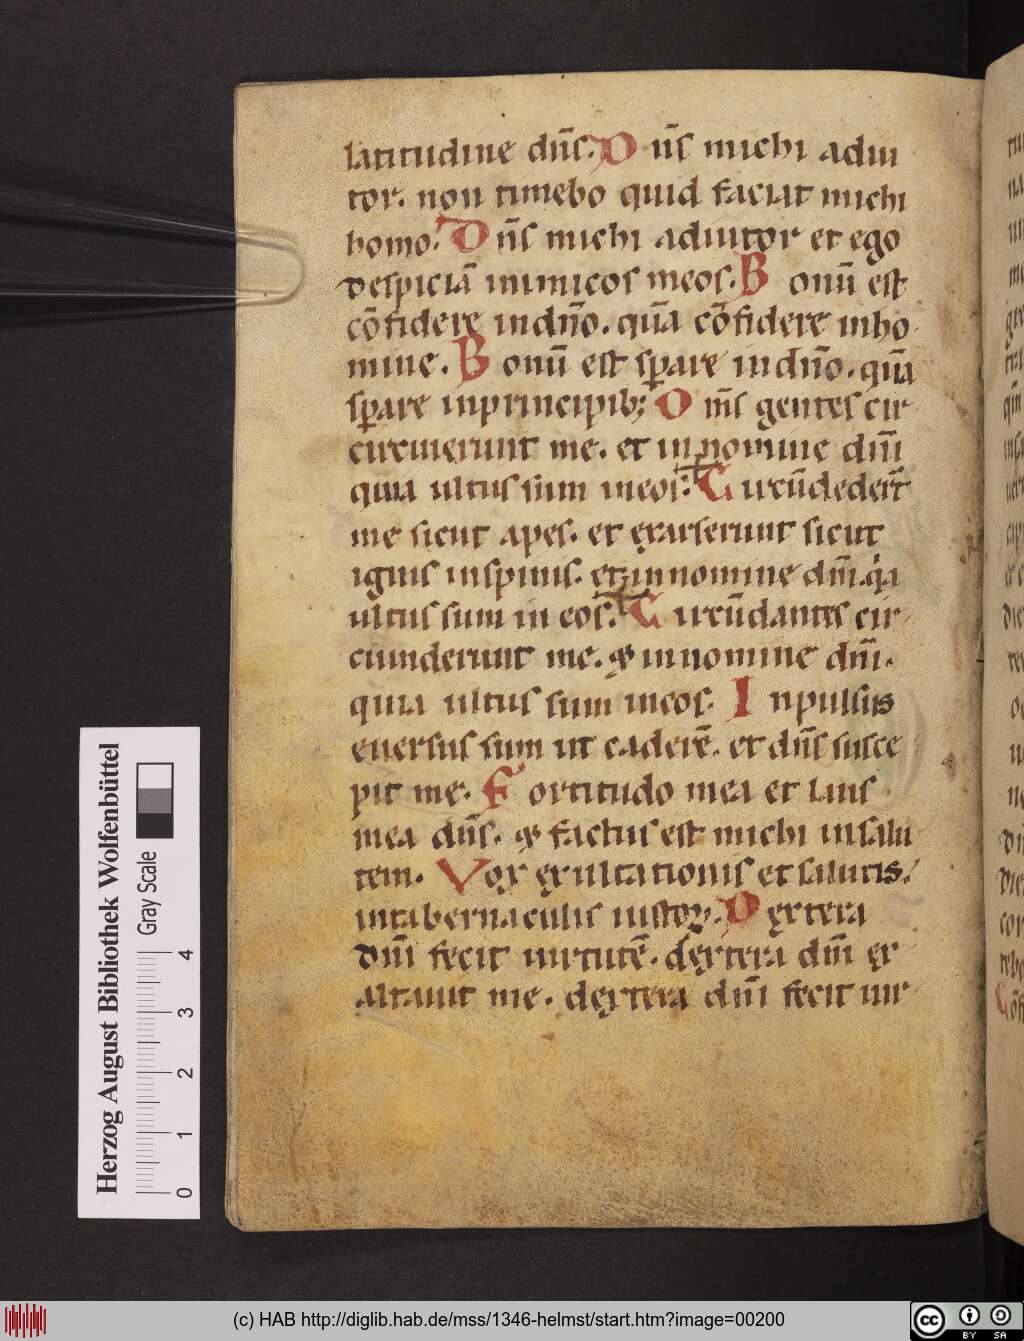 latitudine dn̄s. D n̄s michi adiu
tor. non timebo quid faciat michi
homo. D n̄s michi adiutor et ego
despiciā inimicos meos. B onū est
cōfidere in dn̄o. quā cōfidere in ho
mine. B onū est sꝑare in dn̄o. quā
sꝑare in principib; O m̄s gentes cir
circuierunt me. et in nomine dn̄i
quia ultus sum in eos. C ircūdeder̄t
me sicut apes. et exarserunt sicut
ignis in spinis. et in nomine dn̄i. q̇a
ultus sum in eos. C ircūdantes cir
cumderunt me. & in nomine dn̄i.
quia ultus sum in eos. I npulsus
euersus sum ut caderē. et dn̄s susce
pit me. F ortitudo mea et laus
mea dn̄s. & factus est michi in salu
tem. V ox exultationis et salutis.
in tabernaculis iustoꝝ. D extera
dn̄i fecit uirtutē. dextera dn̄i ex
altauit me. dextera dn̄i fecit uir
Herzog August Bibliothek Wolfenbüttel
Gray Scale
0 1 2 3 4
(c) HAB http://diglib.hab.de/mss/1346-helmst/start.htm?image=00200
cc BY SA